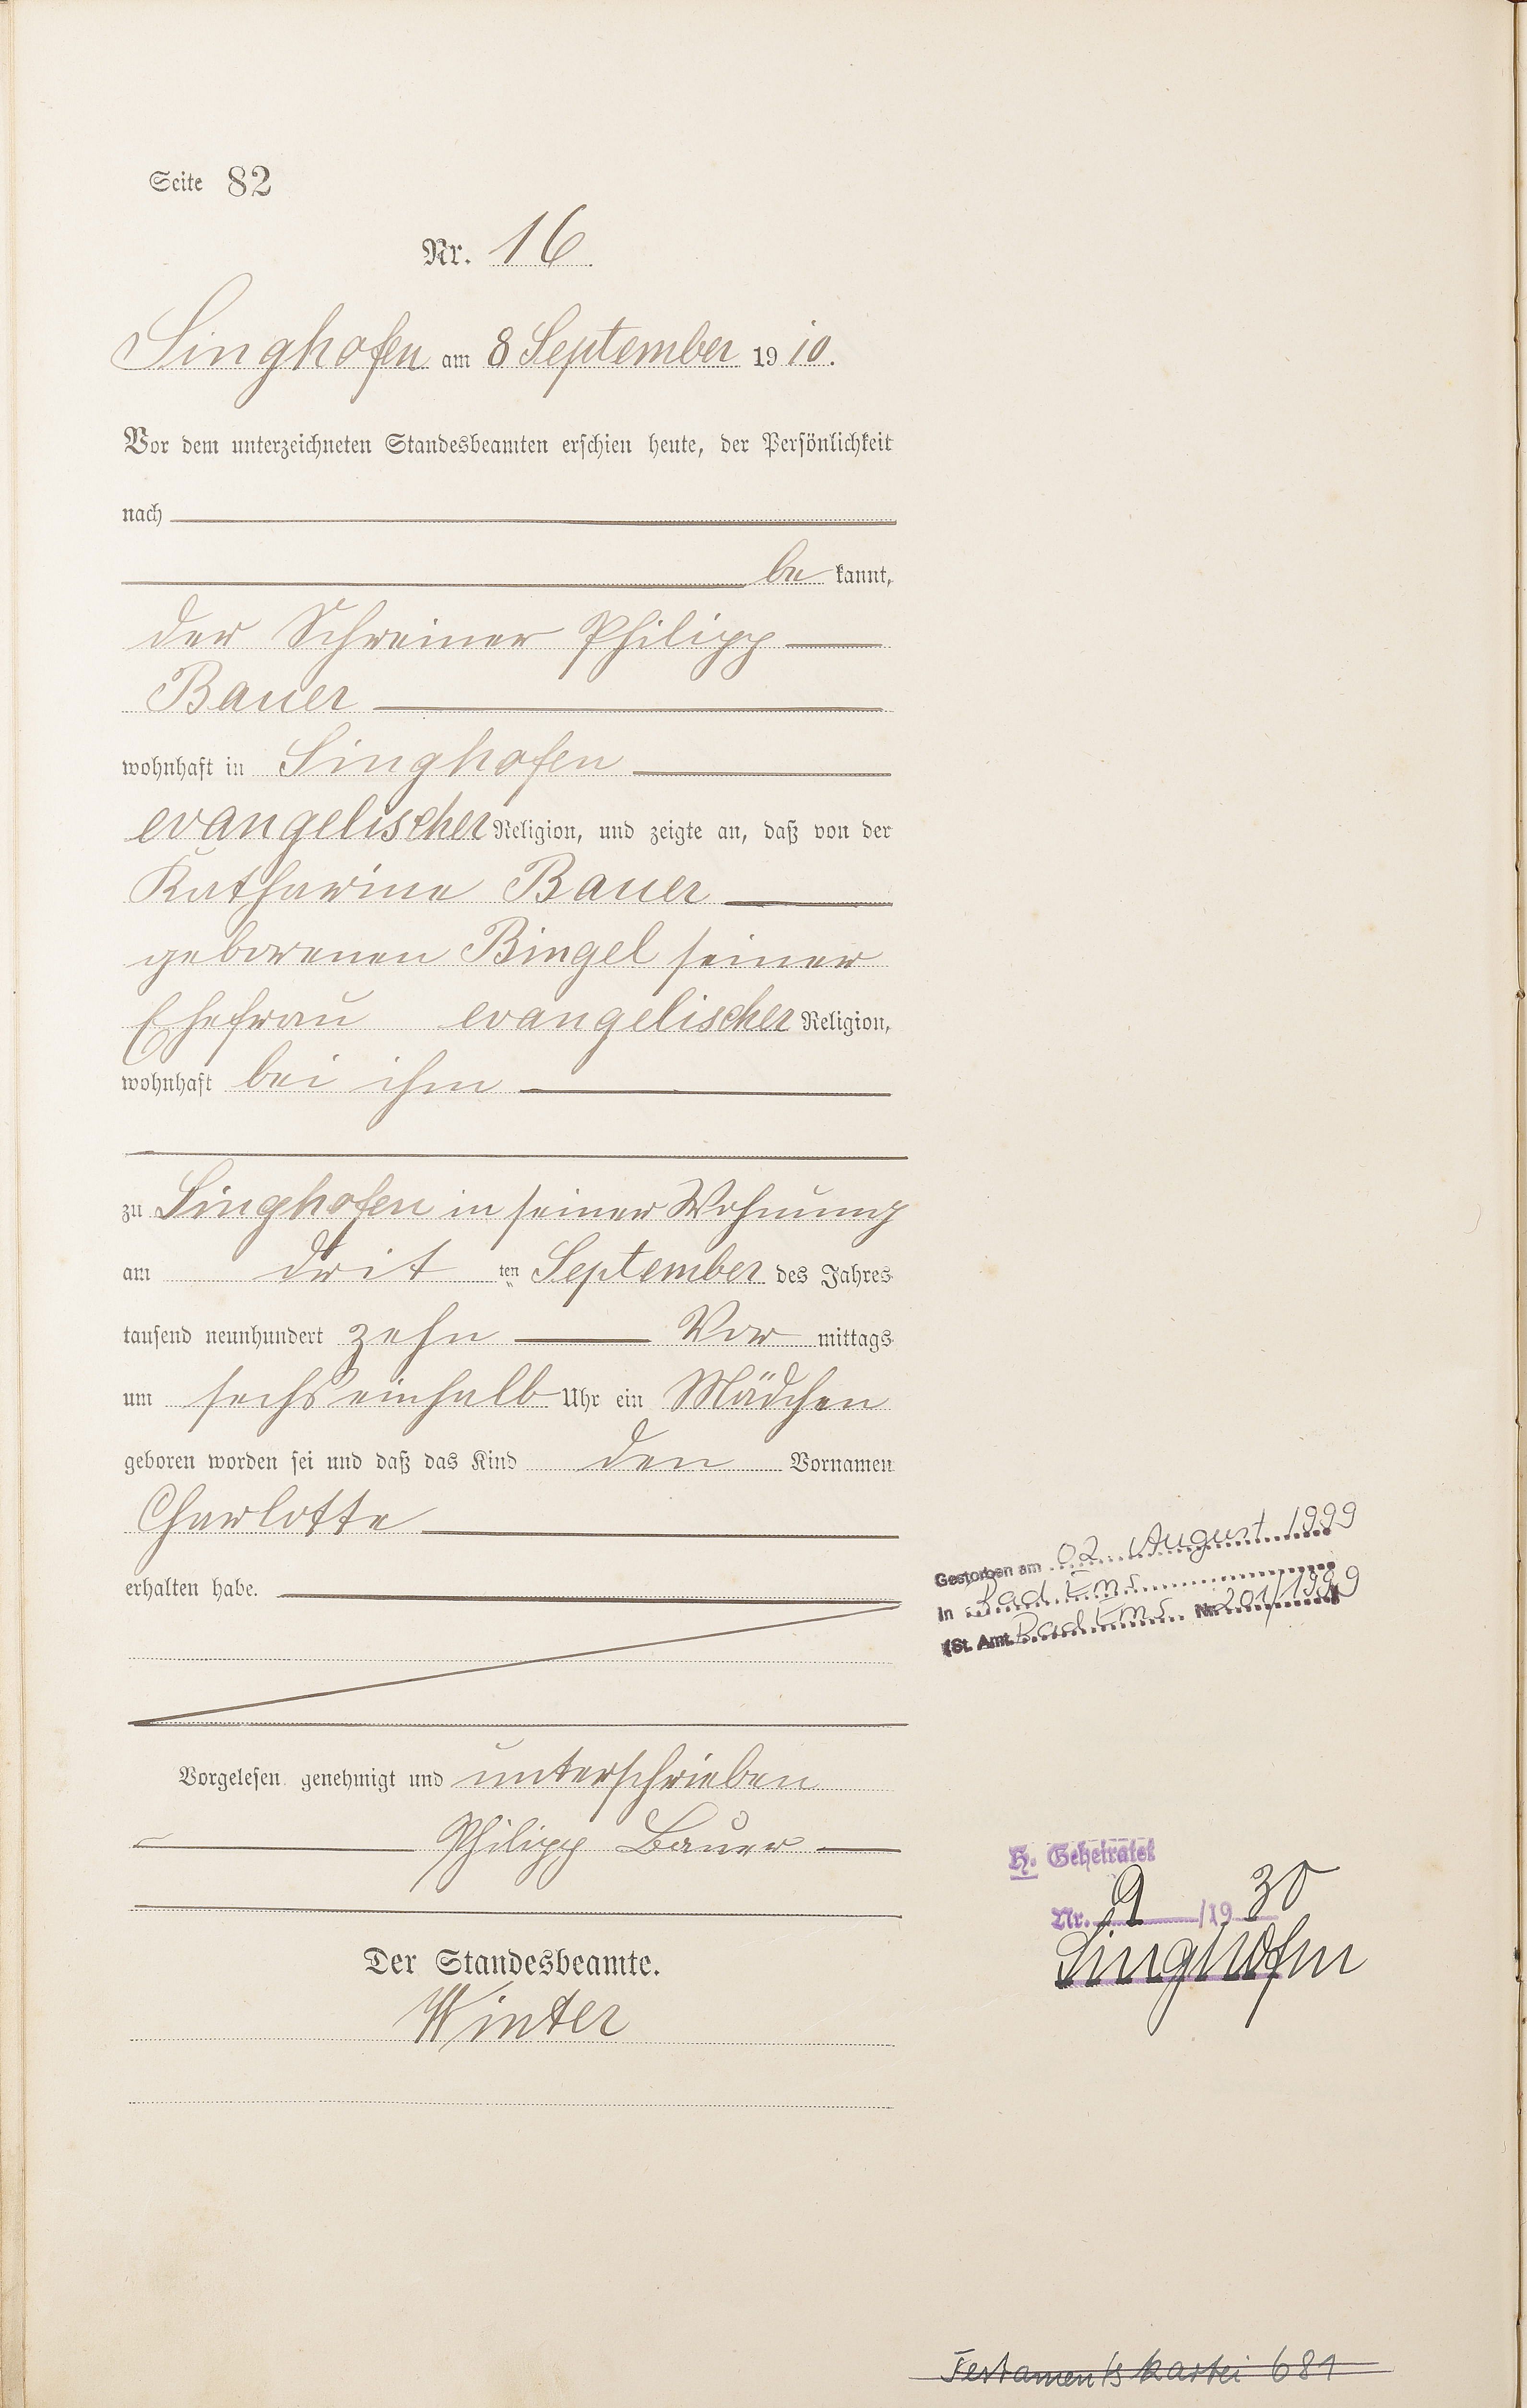 Seite 82
Nr. 16
Singhofen am 8 September 1910.
Vor dem unterzeichneten Standesbeamten erschien heute, der Persönlichkeit
nach
be kannt,
der Schreiner Philipp
Bauer
wohnhaft in Singhofen
evangelischer Religion, und zeigte an, daß von der
Katharina Bauer
geborenen Bingel seiner
Ehefrau evangelischer Religion,
wohnhaft bei ihm
zu Singhofen in seiner Wohnung
am drit ten September des Jahres
tausend neunhundert zehn Vor mittags
um sechs einhalb Uhr ein Mädchen
geboren worden sei und daß das Kind den Vornamen
Charlotte
erhalten habe.
Gestorben am 02. August 1999
in Bad Ems
(St. Amt Bad Ems Nr. 201/1999)
Vorgelesen genehmigt und unterschrieben
Philipp Bauer
H. Geheiratet
Nr. 9 /19 30
Singhofen
Der Standesbeamte.
Winter
Testamentskartei 681